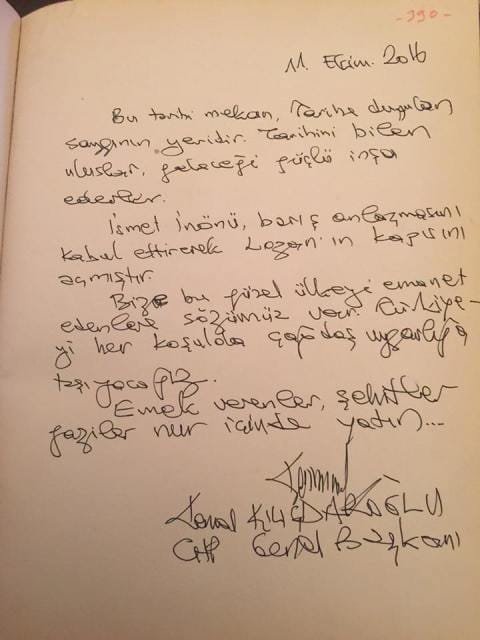 -390-
11. Ekim. 2016
Bu tarihi mekan, Tarihe duyulan
saygının yeridir. Tarihini bilen
uluslar, geleceği güçlü inşa
ederler.
İsmet İnönü, barış anlaşmasını
kabul ettirerek Lozan'ın kapısını
açmıştır.
Bize bu güzel ülkeyi emanet
edenlere sözümüz var. Türkiye-
yi her koşulda çağdaş uygarlığa
taşıyacağız.
Emek verenler, şehitler
gaziler nur içinde yatın...
Kemal KILIÇDAROĞLU
CHP Genel Başkanı